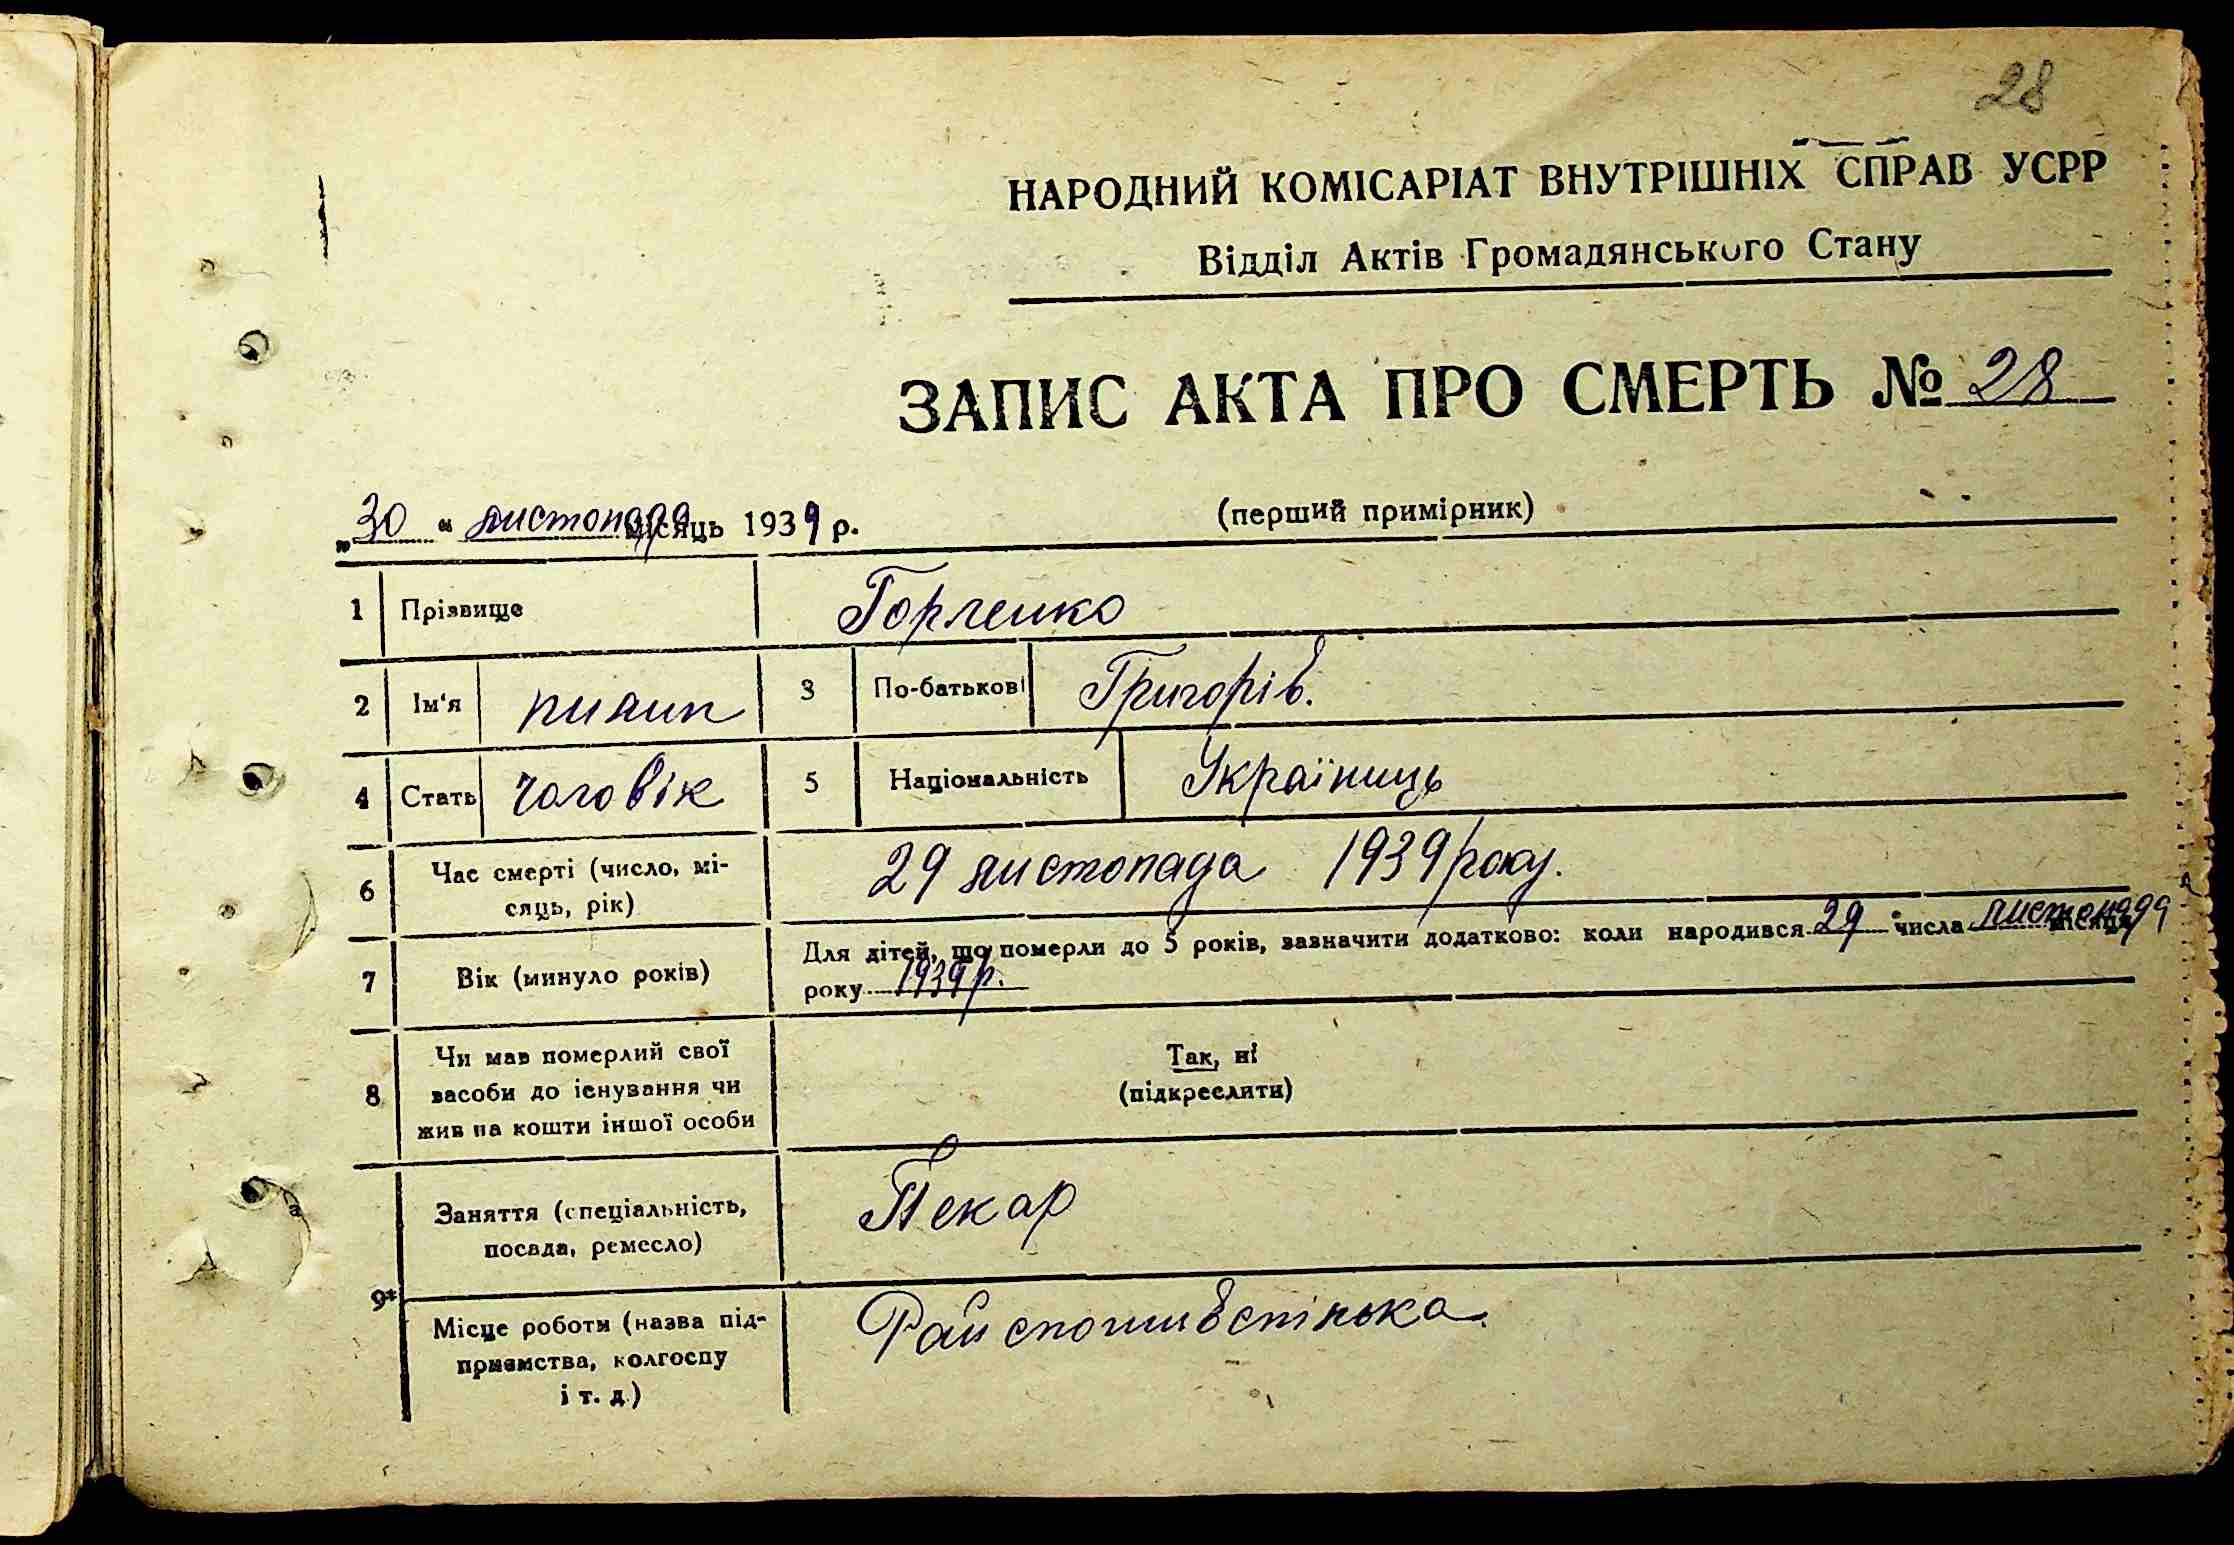 28
НАРОДНИЙ КОМІСАРІАТ ВНУТРІШНІХ СПРАВ УСРР
Відділ Актів Громадянського Стану
ЗАПИС АКТА ПРО СМЕРТЬ № 28
„30“ листопада місяць 1939 р.
(перший примірник)
1 Прізвище Горленко
2 Ім'я пилип 3 По-батькові Григорів.
4 Стать чоловік 5 Національність Українць
6 Час смерті (число, мі-
сяць, рік) 29 листопада 1939 року.
7 Вік (минуло років) Для дітей, що померли до 5 років, зазначити додатково: коли народився 29 числа листопада місяця
року 1939 р.
8 Чи мав померлий свої
засоби до існування чи
жив на кошти іншої особи
Так, ні
(підкреслити)
9* Заняття (спеціальність,
посада, ремесло) Пекар
Місце роботи (назва під-
приємства, колгоспу
і т. д.)